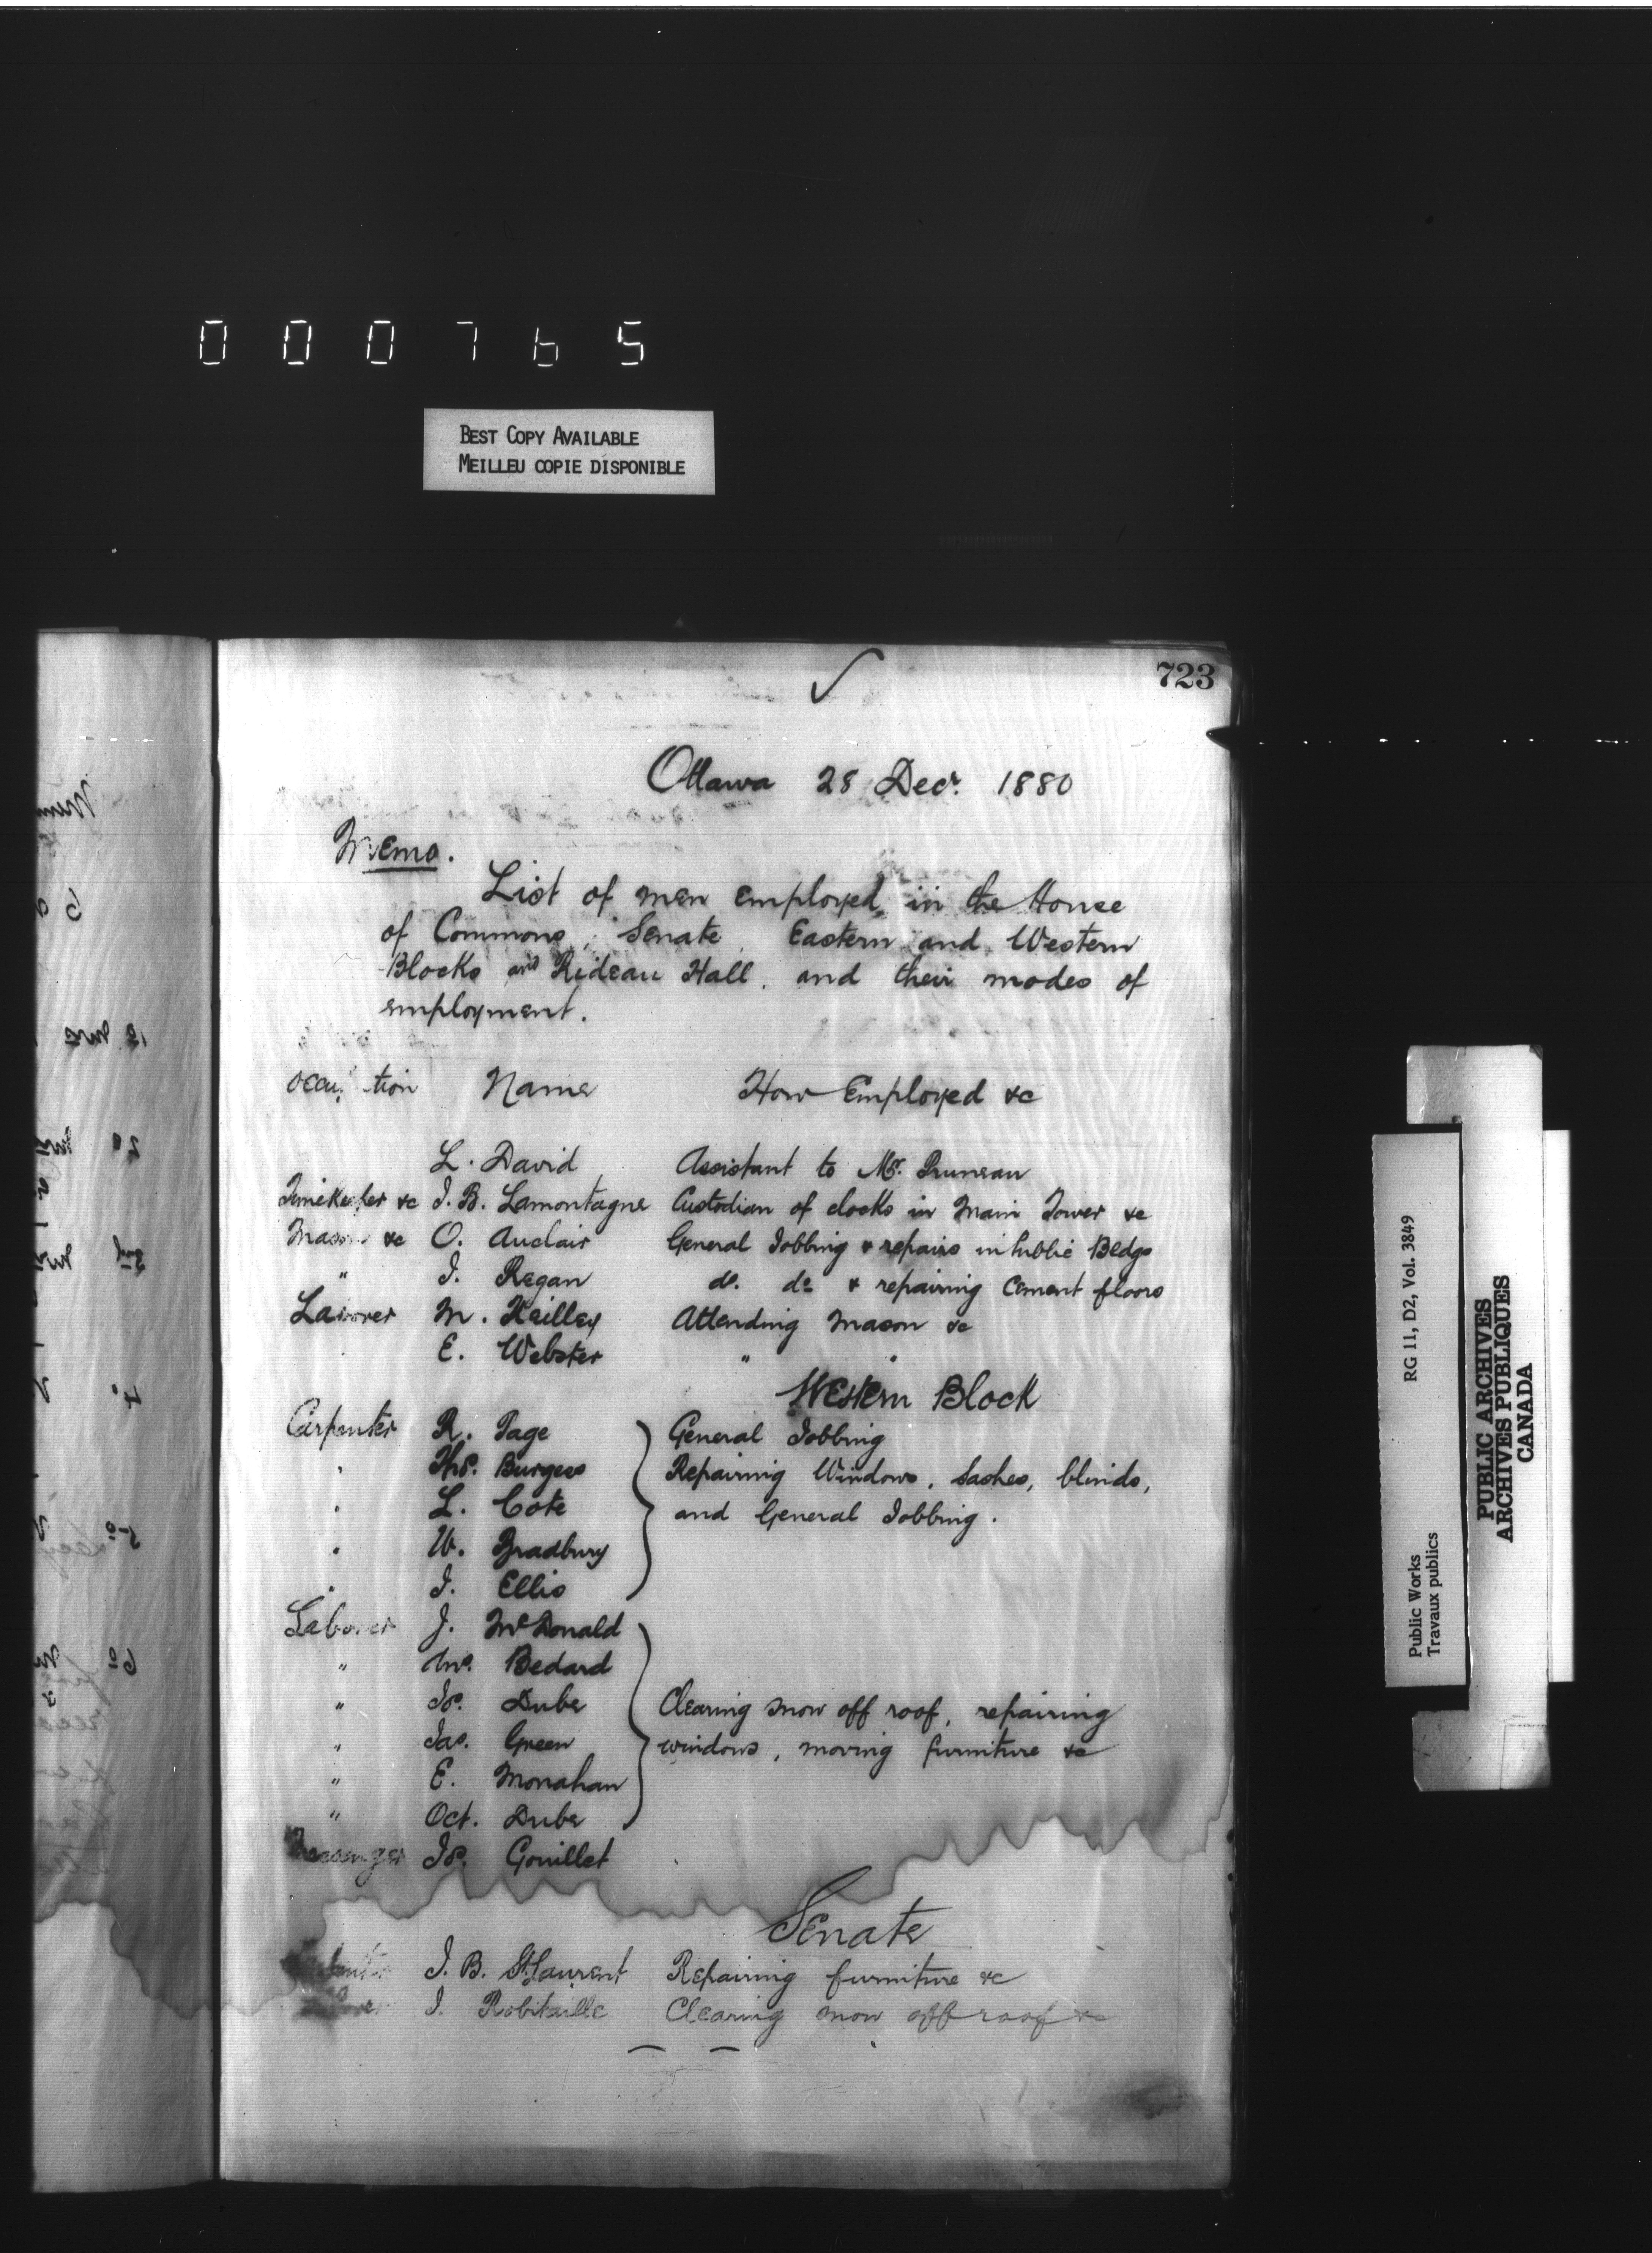 000765
BEST COPY AVAILABLE
MEILLEU COPIE DISPONIBLE
723
Ottawa 28 Decr. 1880
Memo.
List of men employed in the House
of Commons, Senate Eastern and Western
Blocks and Rideau Hall, and their modes of
employment.
Occu tion Name How Employed &c
L. David Assistant to Mr. Pruneau
Timekeeper &c J. B. Lamontagne Custodian of clocks in Main Tower &c
Mason &c O. Auclair General Jobbing & repairs in Public Bldgs
" J. Regan do. do & repairing Cement floors
Laborer M. Keilley Attending Mason &c
E. Webster " "
Western Block
Carpenter R. Page General Jobbing
" Thos. Burgess Repairing Windows, Sashes, blinds,
" L. Cote and General Jobbing.
" W. Bradbury
" J. Ellis
Laborer J. McDonald
" Bedard
" Jos. Dube Clearing snow off roof, repairing
" Jas. Green windows, moving furniture &c
" E. Monahan
" Oct. Dube
Messenger Jos. Gouillet
Senate
J. B. St. Laurent Repairing furniture &c
J. Robitaille Clearing snow off roof &c
RG 11, D2, Vol. 3849
Public Works
Travaux publics
PUBLIC ARCHIVES
ARCHIVES PUBLIQUES
CANADA